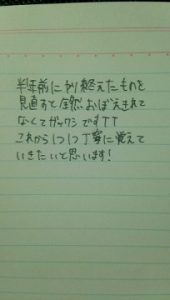 半年前にやり終えたものを
見直すと全然おぼえきれて
なくてガックシですTT
これから1つ1つ丁寧に覚えて
いきたいと思います!